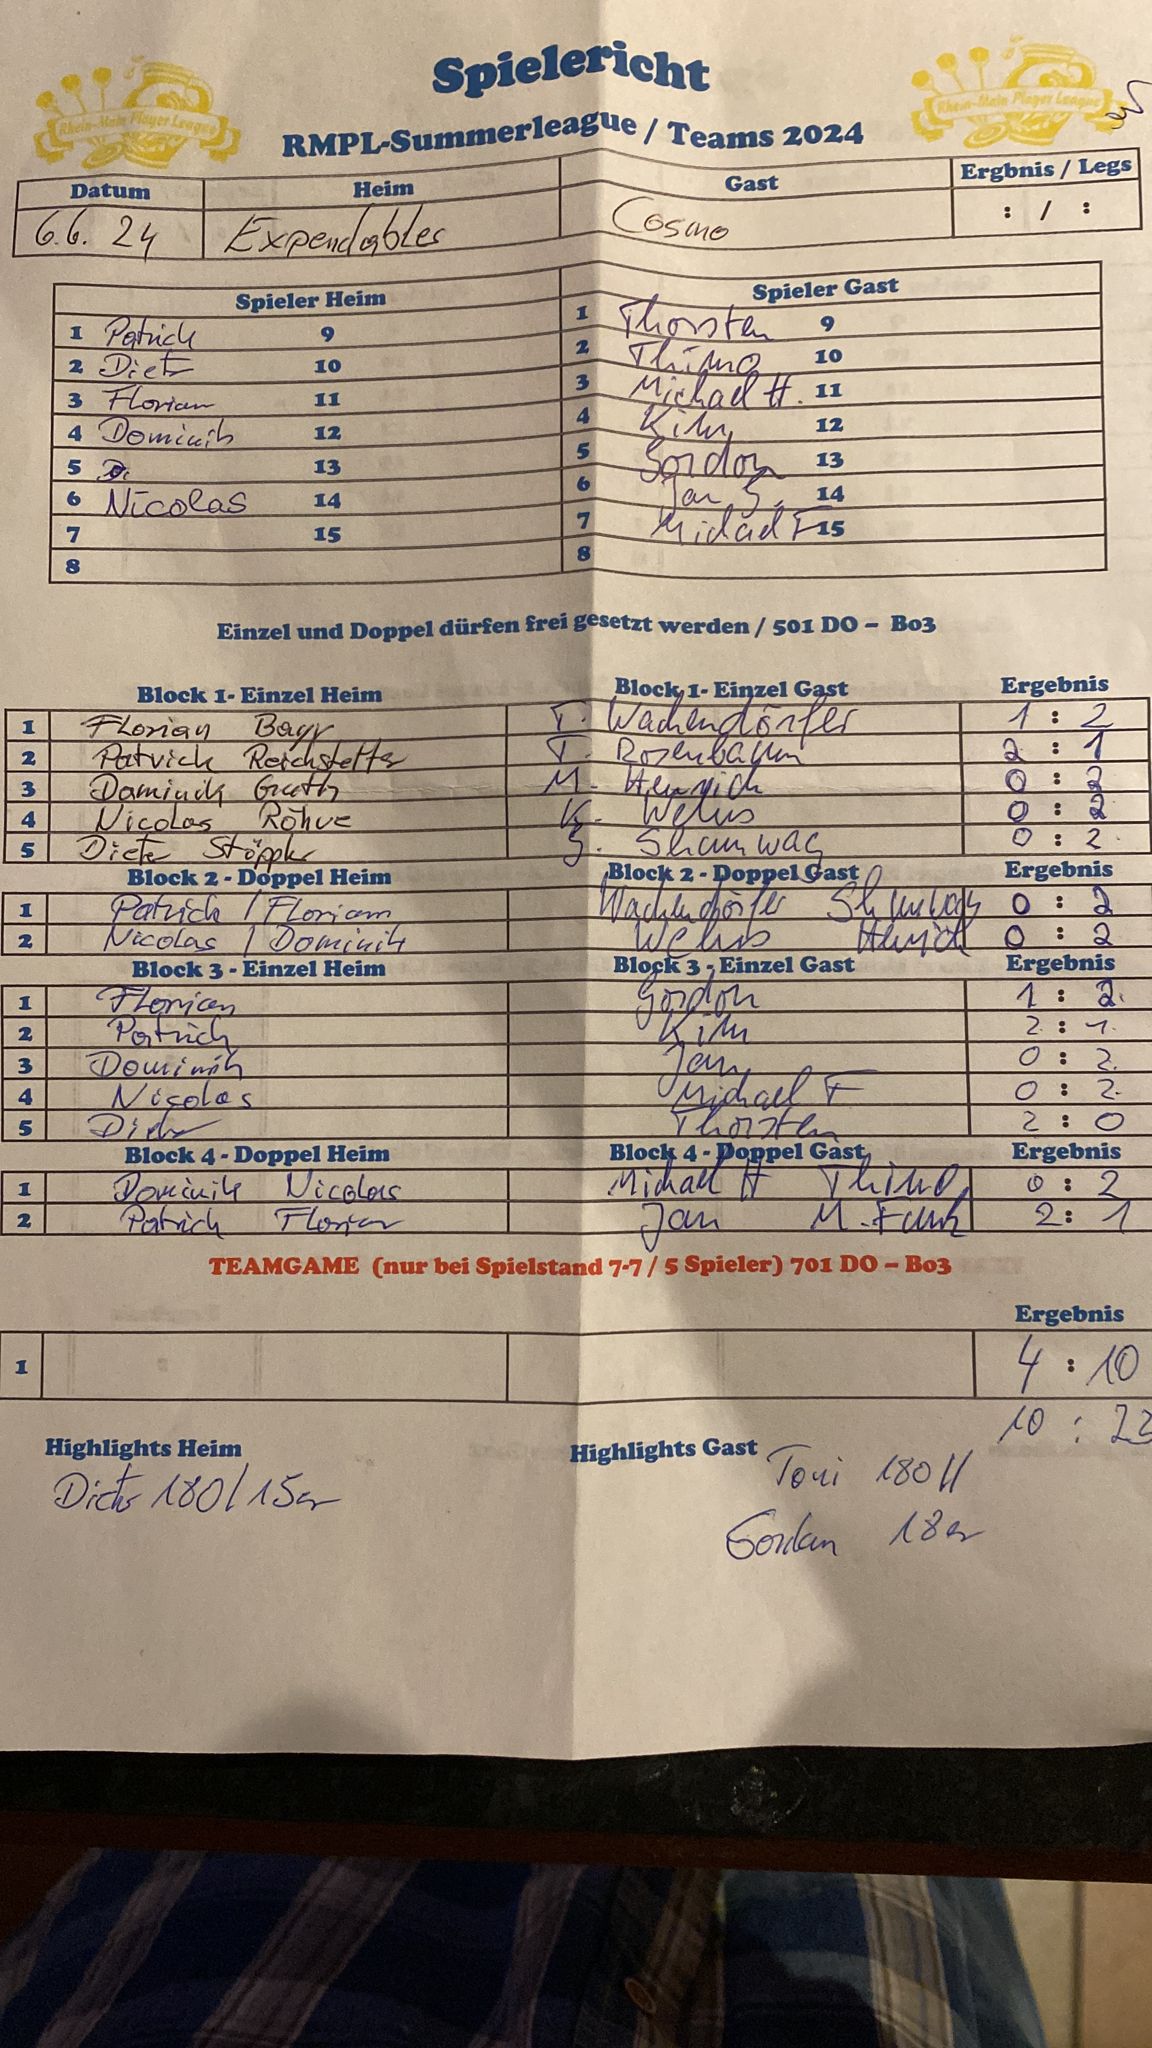 Spielericht
Rhein-Main Player League
Rhein-Main Player League
RMPL-Summerleague / Teams 2024
Datum Heim Gast Ergbnis / Legs
6.6. 24 Expendables Cosmo : / :
Spieler Heim Spieler Gast
1 Patrick 9 1 Thorsten 9
2 Dieter 10 2 Thimo 10
3 Florian 11 3 Michael H. 11
4 Dominik 12 4 Kim 12
5 D. 13 5 Gordon 13
6 Nicolas 14 6 Jan S. 14
7 15 7 Michael F 15
8 8
Einzel und Doppel dürfen frei gesetzt werden / 501 DO – Bo3
Block 1- Einzel Heim Block 1- Einzel Gast Ergebnis
1 Florian Bayr T. Wachendörfer 1 : 2
2 Patrick Reichstetter T. Rosenbaum 2 : 1
3 Dominik Guth M. Henrich 0 : 2
4 Nicolas Röhve K. Welus 0 : 2
5 Dieter Stöppler G. Shumway 0 : 2
Block 2 - Doppel Heim Block 2 - Doppel Gast Ergebnis
1 Patrick / Florian Wachendörfer Shumway 0 : 2
2 Nicolas / Dominik Welus Henrich 0 : 2
Block 3 - Einzel Heim Block 3 - Einzel Gast Ergebnis
1 Florian Gordon 1 : 2
2 Patrick Kim 2 : 1
3 Dominik Jan 0 : 2
4 Nicolas Michael F 0 : 2
5 Dieter Thorsten 2 : 0
Block 4 - Doppel Heim Block 4 - Doppel Gast Ergebnis
1 Dominik Nicolas Michael H Thimo 0 : 2
2 Patrick Florian Jan M. Funk 2 : 1
TEAMGAME (nur bei Spielstand 7-7 / 5 Spieler) 701 DO – Bo3
Ergebnis
1 4 : 10
10 : 23
Highlights Heim Highlights Gast
Dieter 180 / 15er Toni 180 II
Gordon 18er